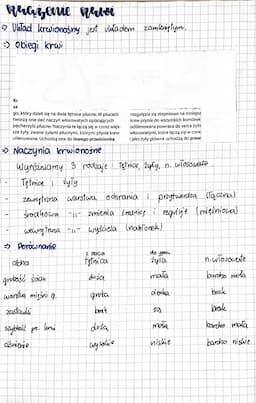 Układ krwionośny jest układem zamkniętym.
Obiegi krwi
go, który dzieli się na dwie tętnice płucne. W płucach
tworzą one sieć naczyń włosowatych oplatających
pęcherzyki płucne. Naczynia te łączą się w coraz więk-
sze żyły, zwane żyłami płucnymi, którymi płynie krew
utlenowana. Uchodzą one do lewego przedsionka
rozgałęzia się stopniowo na mniejsze
krew płynie do wszystkich komórek
odtlenowana powraca do serca żyła
włosowatymi, które łączą się w coraz
i jako żyły główne uchodzą do prawe
Naczynia krwionośne
Wyróżniamy 3 rodzaje: tętnice, żyły, n. włosowate
Tętnice i żyły
- zewnętrzna warstwa ochrania i przytwierdza (łączna)
- środkowa -"- zmienia średnicę i reguluje (mięśniowa)
- wewnętrzna -"- wyściela (nabłonek)
Porównanie
z serca do serca
cecha tętnica żyła n. włosowate
grubość ścian duża mała bardzo mała
warstwa mięśni g. gruba cienka brak
zastawki brak są brak
szybkość prz. krwi duża mała bardzo mała
ciśnienie wysokie niskie bardzo niskie